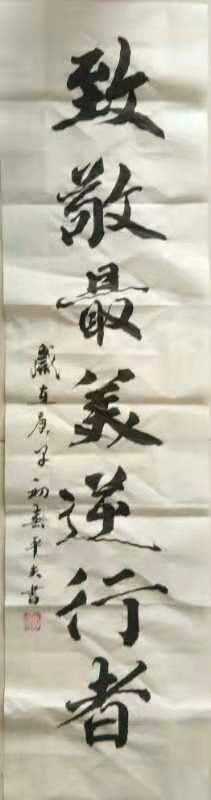 致敬最美逆行者
歲在庚子初春平夫書